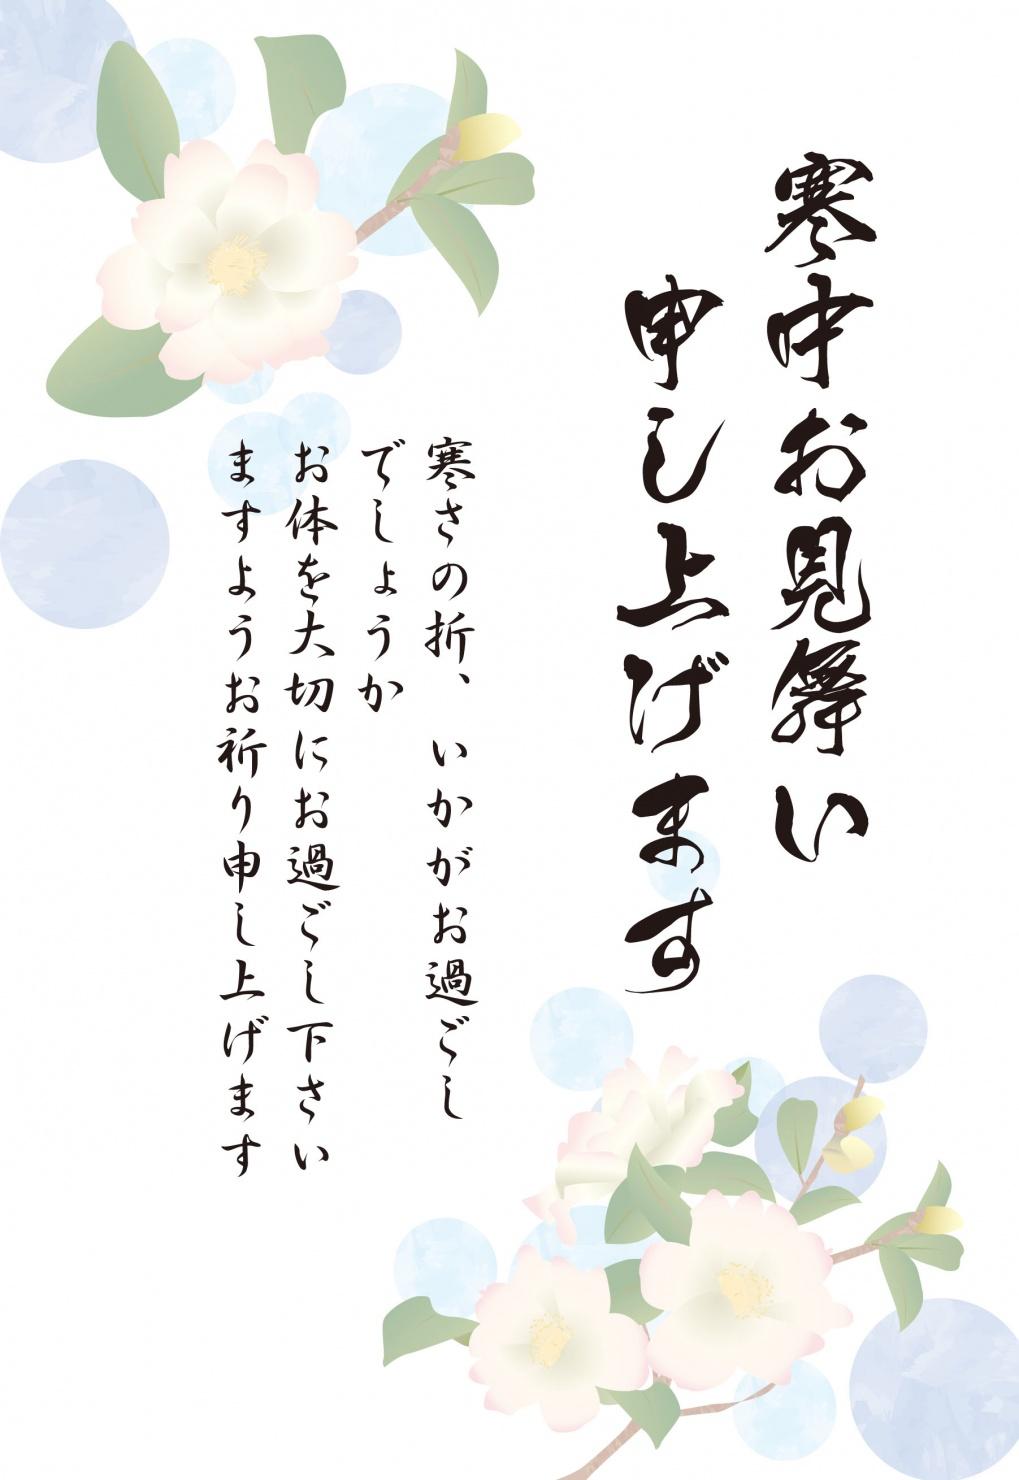 寒中お見舞い
申し上げます
寒さの折、いかがお過ごし
でしょうか
お体を大切にお過ごし下さい
ますようお祈り申し上げます